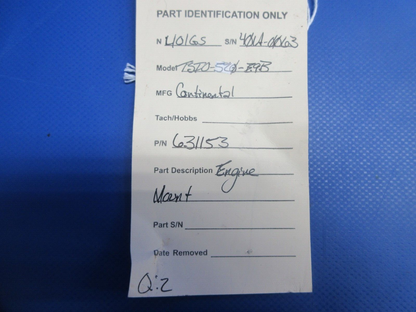 PART IDENTIFICATION ONLY
N L101GS S/N
Model TSIO-520-
MFG Continental
Tach/Hobbs
P/N 631153
Part Description Engine
Mount
Part S/N
Date Removed
Q:2